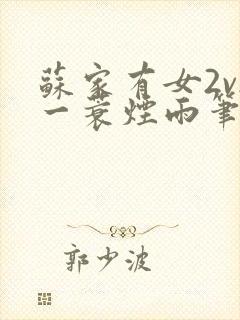 蘇家有女2v
一蓑煙雨筆
郭少波